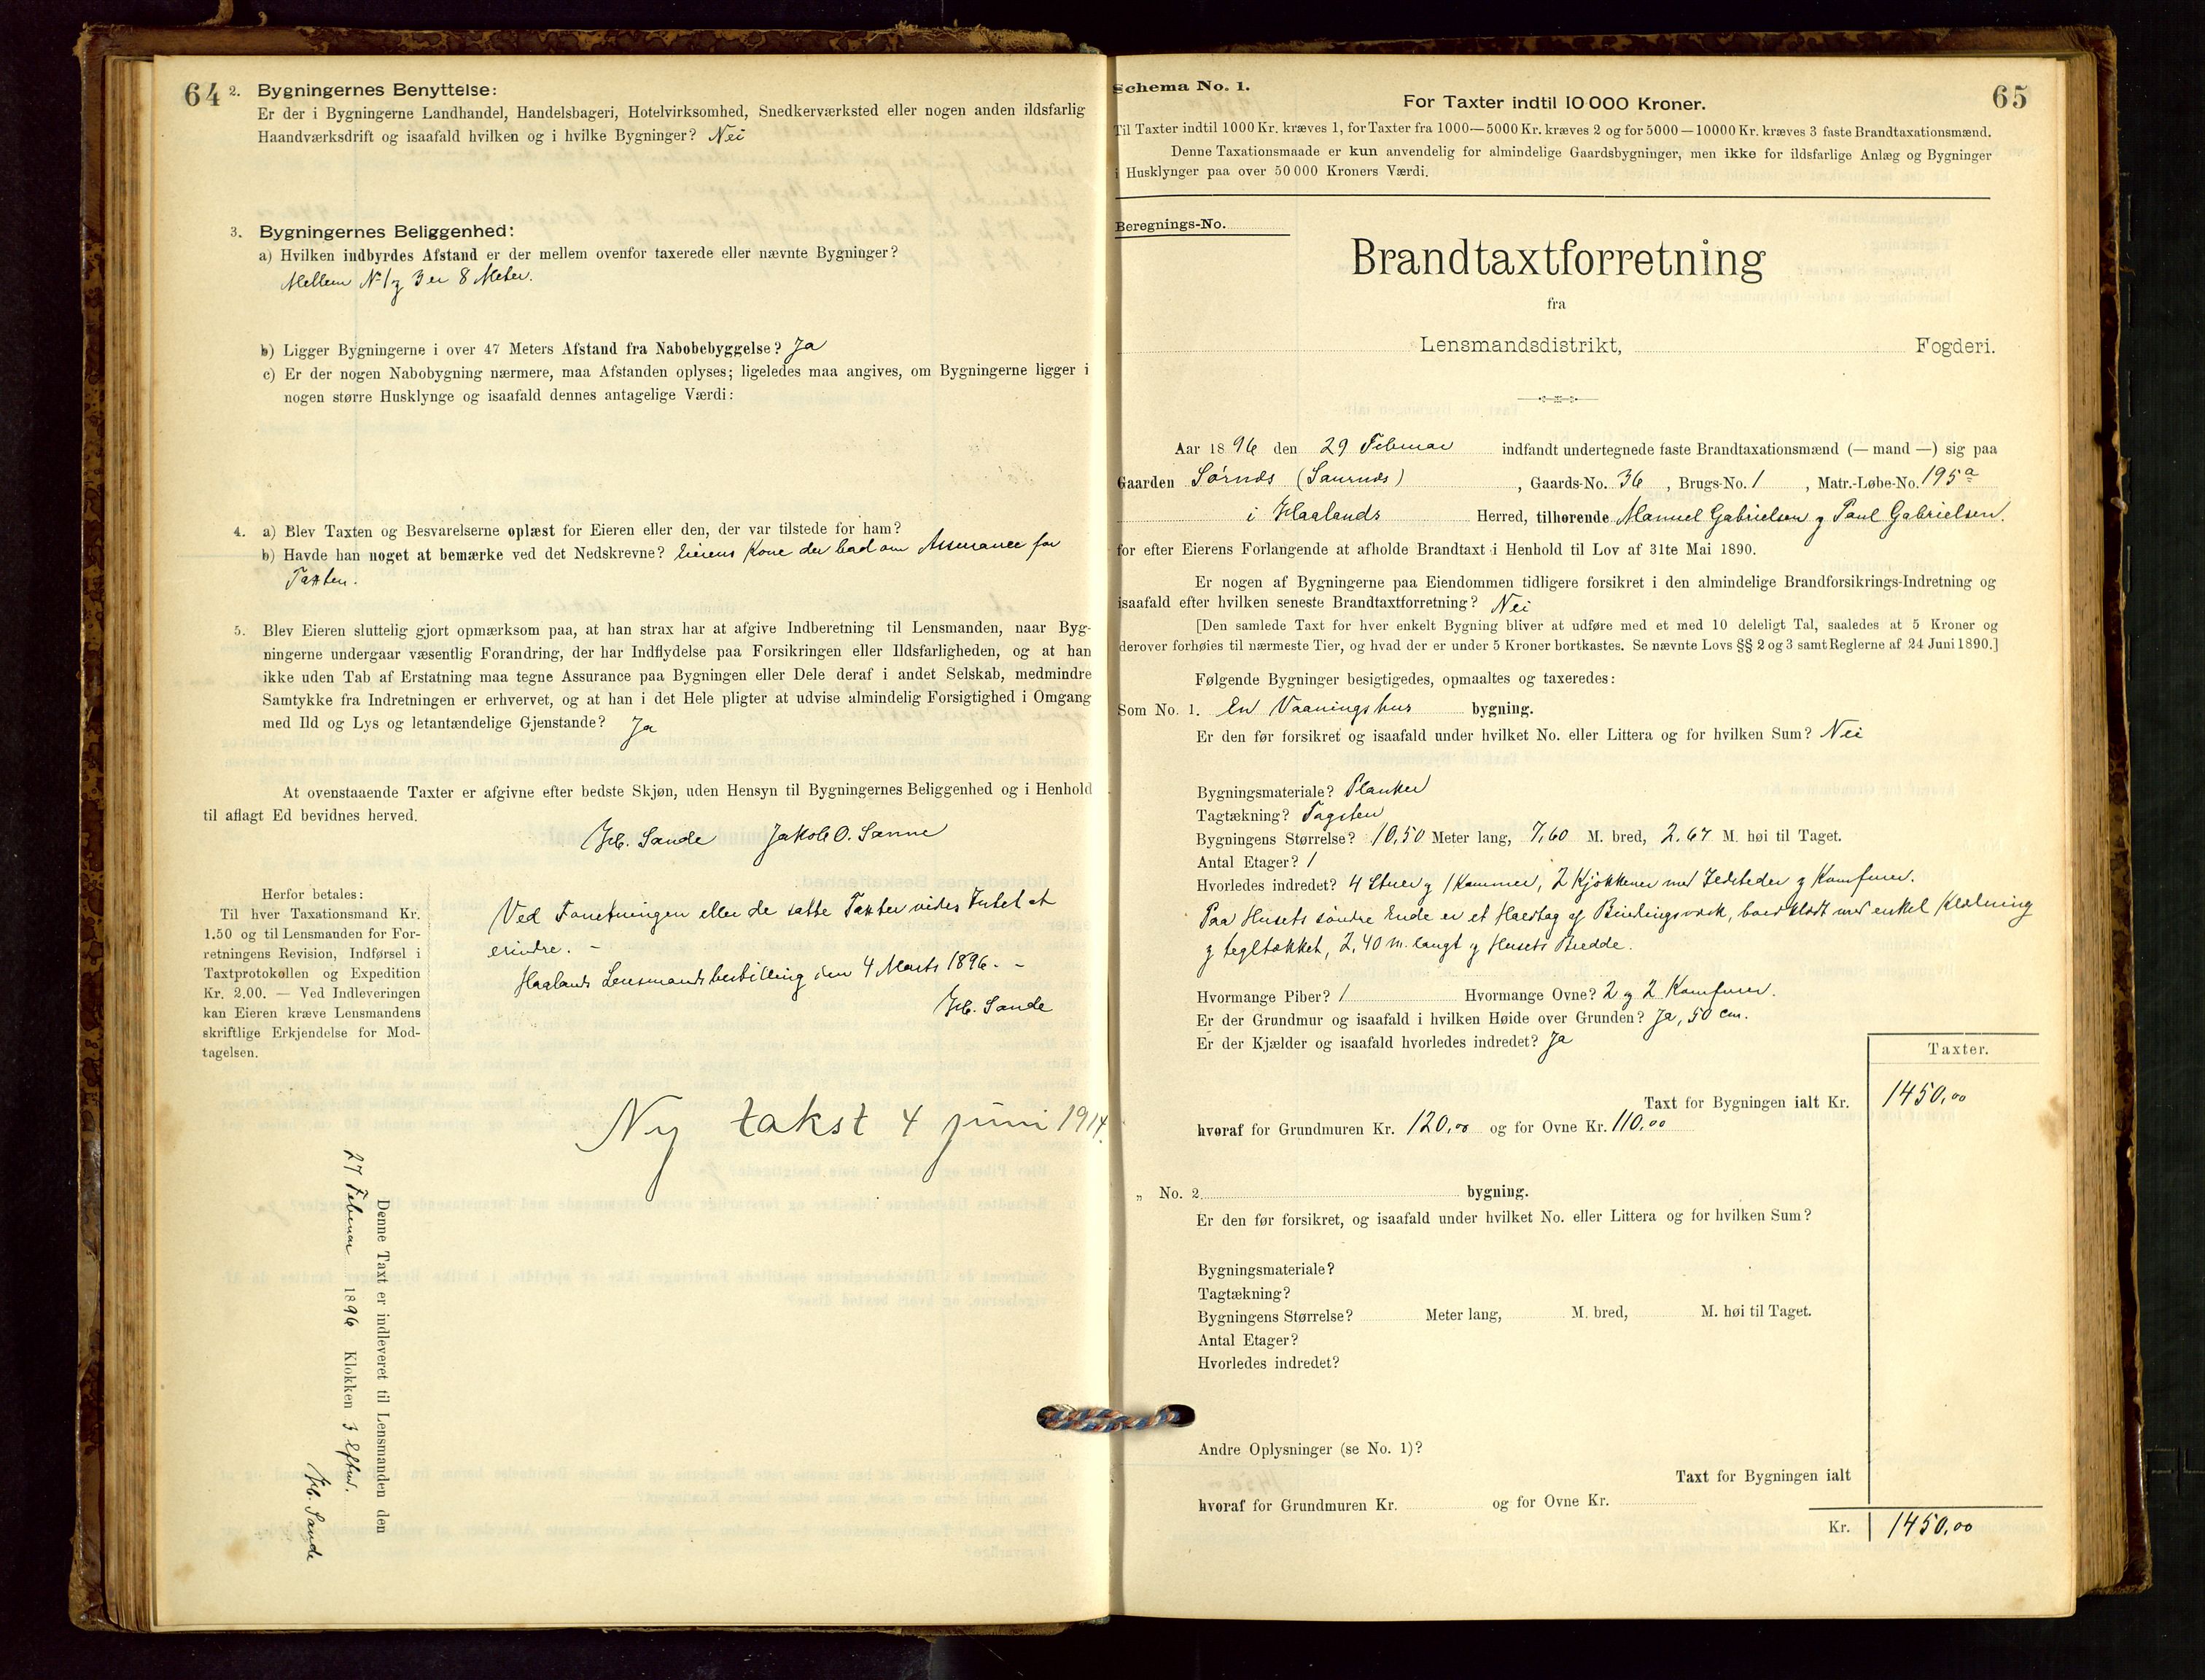 64
2. Bygningernes Benyttelse:
Er der i Bygningerne Landhandel, Handelsbageri, Hotelvirksomhed, Snedkerværksted eller nogen anden ildsfarlig
Haandværksdrift og isaafald hvilken og i hvilke Bygninger? Nei
3. Bygningernes Beliggenhed:
a) Hvilken indbyrdes Afstand er der mellem ovenfor taxerede eller nævnte Bygninger?
Mellem N 1 og 3 er 8 Meter.
b) Ligger Bygningerne i over 47 Meters Afstand fra Nabobebyggelse? Ja
c) Er der nogen Nabobygning nærmere, maa Afstanden oplyses; ligeledes maa angives, om Bygningerne ligger i
nogen større Husklynge og isaafald dennes antagelige Værdi:
4. a) Blev Taxten og Besvarelserne oplæst for Eieren eller den, der var tilstede for ham?
b) Havde han noget at bemærke ved det Nedskrevne? Eierens Kone der bad om Assurance for
Taxten.
5. Blev Eieren sluttelig gjort opmærksom paa, at han strax har at afgive Indberetning til Lensmanden, naar Byg-
ningerne undergaar væsentlig Forandring, der har Indflydelse paa Forsikringen eller Ildsfarligheden, og at han
ikke uden Tab af Erstatning maa tegne Assurance paa Bygningen eller Dele deraf i andet Selskab, medmindre
Samtykke fra Indretningen er erhvervet, og at han i det Hele pligter at udvise almindelig Forsigtighed i Omgang
med Ild og Lys og letantændelige Gjenstande? Ja
At ovenstaaende Taxter er afgivne efter bedste Skjøn, uden Hensyn til Bygningernes Beliggenhed og i Henhold
til aflagt Ed bevidnes herved.
Sande Jakob O. Sømme
Herfor betales:
Til hver Taxationsmand Kr.
1.50 og til Lensmanden for For-
retningens Revision, Indførsel i
Taxtprotokollen og Expedition
Kr. 2.00. — Ved Indleveringen
kan Eieren kræve Lensmandens
skriftlige Erkjendelse for Mod-
tagelsen.
Ved Forretningen eller de satte Taxter vides Intet at
erindre. -
Haalands Lensmandsbestilling den 4 Marts 1896. -
Sande
Ny takst 4 juni 1914.
Denne Taxt er indleveret til Lensmanden den
27 Februar 1896 Klokken 3 Efterm.
Sande
Schema No. 1.
65
For Taxter indtil 10 000 Kroner.
Til Taxter indtil 1000 Kr. kræves 1, for Taxter fra 1000—5000 Kr. kræves 2 og for 5000—10000 Kr. kræves 3 faste Brandtaxationsmænd.
Denne Taxationsmaade er kun anvendelig for almindelige Gaardsbygninger, men ikke for ildsfarlige Anlæg og Bygninger
i Husklynger paa over 50 000 Kroners Værdi.
Beregnings-No.
Brandtaxtforretning
fra
Lensmandsdistrikt, Fogderi.
Aar 1896 den 29 Februar indfandt undertegnede faste Brandtaxationsmænd (— mand —) sig paa
Gaarden Sørnæs (Saurnæs), Gaards-No. 36, Brugs-No. 1, Matr.-Løbe-No. 195a
i Haalands Herred, tilhørende Manuel Gabrielsen og Paul Gabrielsen.
for efter Eierens Forlangende at afholde Brandtaxt i Henhold til Lov af 31te Mai 1890.
Er nogen af Bygningerne paa Eiendommen tidligere forsikret i den almindelige Brandforsikrings-Indretning og
isaafald efter hvilken seneste Brandtaxtforretning? Nei
[Den samlede Taxt for hver enkelt Bygning bliver at udføre med et med 10 deleligt Tal, saaledes at 5 Kroner og
derover forhøies til nærmeste Tier, og hvad der er under 5 Kroner bortkastes. Se nævnte Lovs §§ 2 og 3 samt Reglerne af 24 Juni 1890.]
Følgende Bygninger besigtigedes, opmaaltes og taxeredes:
Som No. 1. En Vaaningshus bygning.
Er den før forsikret og isaafald under hvilket No. eller Littera og for hvilken Sum? Nei
Bygningsmateriale? Planker
Tagtækning? Tagsten
Bygningens Størrelse? 10,50 Meter lang, 7,60 M. bred, 2.67 M. høi til Taget.
Antal Etager? 1
Hvorledes indredet? 4 Stuer og 1 Kammer, 2 Kjøkkener med Ildsteder og Komfurer.
Paa Husets søndre Ende er et Halvtag af Bindingsværk, bordklædt med enkel Klædning
og tegltækket, 2,40 m. langt og Husets Bredde.
Hvormange Piber? 1 Hvormange Ovne? 2 og 2 Komfurer.
Er der Grundmur og isaafald i hvilken Høide over Grunden? Ja, 50 cm.
Er der Kjælder og isaafald hvorledes indredet? Ja
Taxter.
Taxt for Bygningen ialt Kr. 1450,00
hvoraf for Grundmuren Kr. 120,00 og for Ovne Kr. 110,00
„ No. 2 bygning.
Er den før forsikret, og isaafald under hvilket No. eller Littera og for hvilken Sum?
Bygningsmateriale?
Tagtækning?
Bygningens Størrelse? Meter lang, M. bred, M. høi til Taget.
Antal Etager?
Hvorledes indredet?
Andre Oplysninger (se No. 1)?
Taxt for Bygningen ialt
hvoraf for Grundmuren Kr. og for Ovne Kr.
Kr. 1450,00